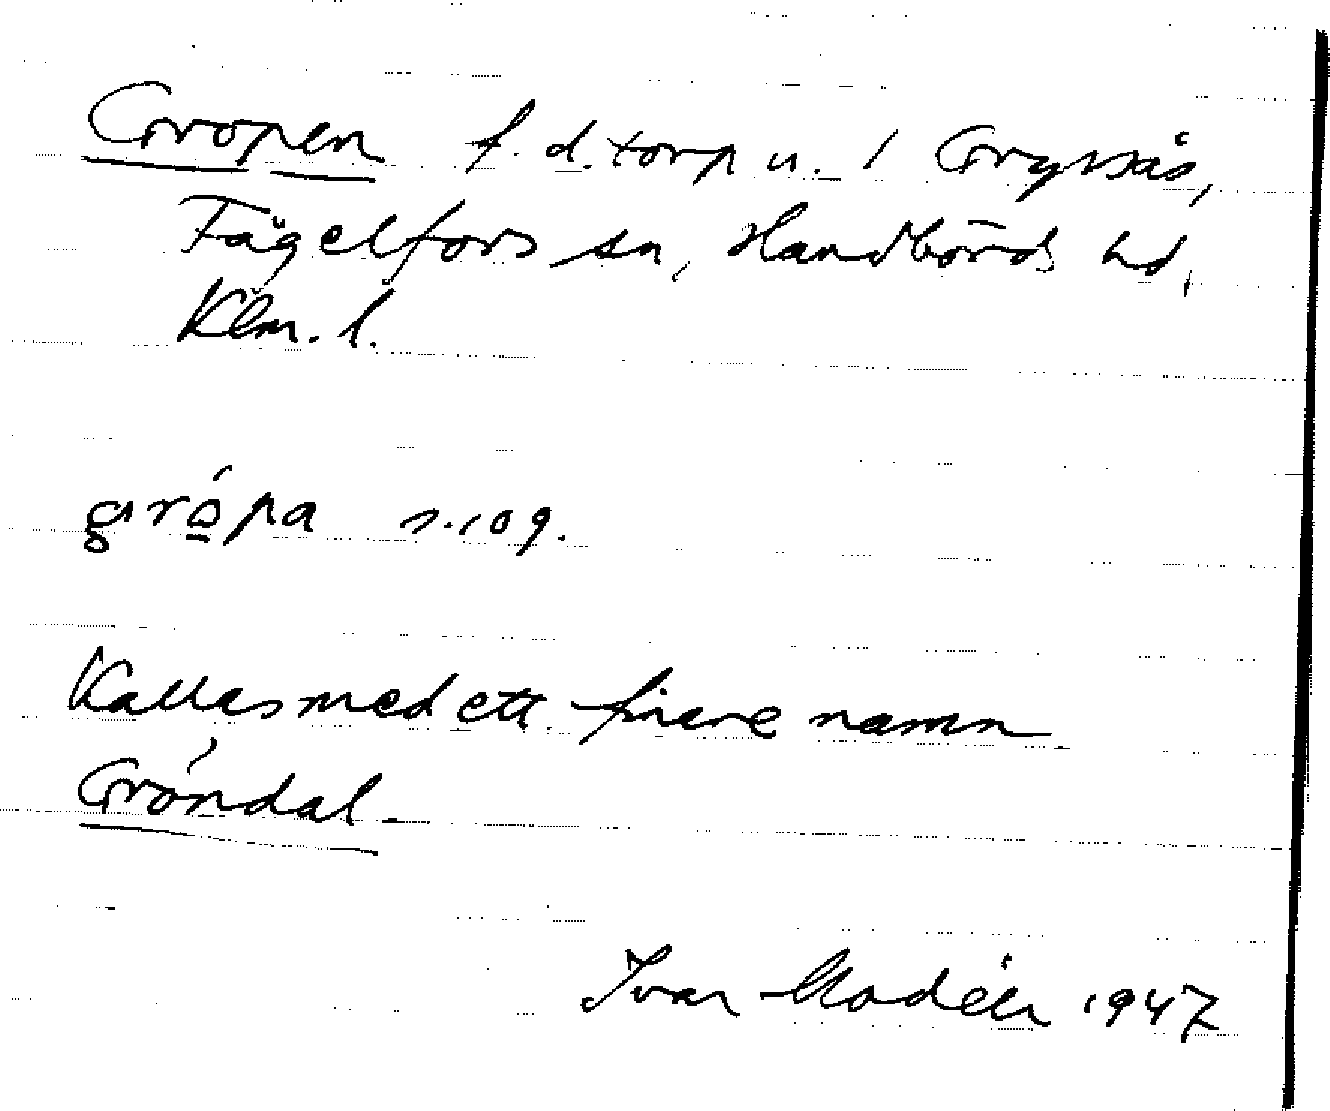 Gropen f. d. torp u. 1 Gryssås,
Fågelfors sn, Handbörds hd,
Klm. l.
grópa s. 109.
Kallas med ett finare namn
Gröndal
Ivar Modéer 1947